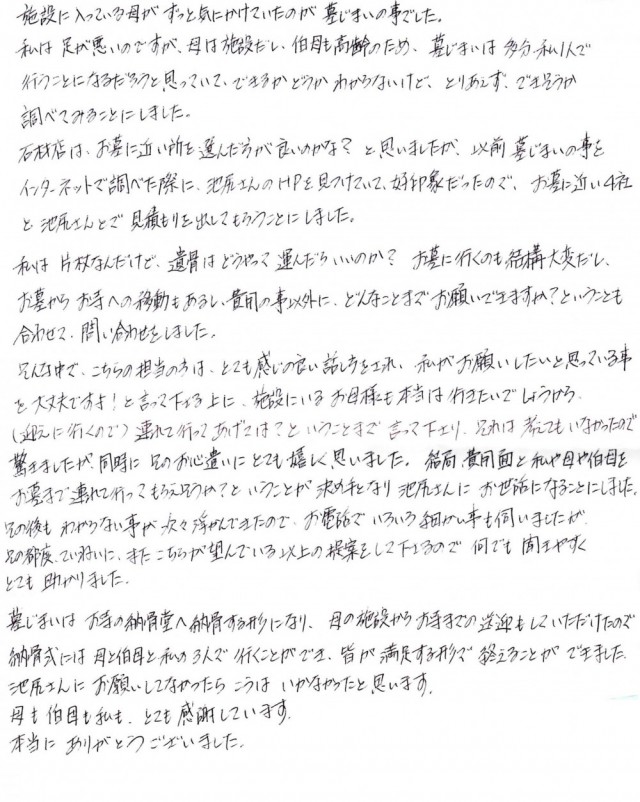 施設に入っている母が ずっと気にかけていたのが 墓じまいの事でした。
私は 足が悪いのですが、母は施設だし、伯母も高齢のため、墓じまいは 多分 私1人で
行うことになるだろうと思っていて、できるかどうか わからないけど、とりあえず、できそうか
調べてみることにしました。
石材店は、お墓に近い所を選んだ方が良いのかな? と思いましたが、以前 墓じまいの事を
インターネットで調べた際に、池尻さんのHPを見つけていて、好印象だったので、お墓に近い4社
と 池尻さんとで 見積もりを出してもらうことにしました。
私は 片杖なんだけど、遺骨は どうやって 運んだらいいのか? お墓に行くのも結構大変だし、
お墓から お寺への移動もあるし、費用の事以外に、どんなことまで お願いできますか?ということも
合わせて、問い合わせをしました。
そんな中で、こちらの担当の方は、とても感じの良い話し方をされ、私がお願いしたいと思っている事
を 大丈夫ですよ!と言って下さる上に、施設にいるお母様も本当は行きたいでしょうから、
(迎えに行くので)連れて行ってあげては?ということまで 言って下さり、それは考えてもいなかったので
驚きましたが、同時に そのお心遣いに とても嬉しく思いました。結局 費用面と 私や母や伯母を
お墓まで連れて行ってもらえそうか?ということが 決め手となり 池尻さんに お世話になることにしました。
その後も わからない事が 次々浮かんできたので、お電話で いろいろ細かい事も伺いましたが、
その都度、ていねいに、また こちらが望んでいる以上の提案をして下さるので 何でも 聞きやすく
とても 助かりました。
墓じまいは お寺の納骨堂へ納骨する形になり、母の施設から お寺までの送迎も していただけたので
納骨式には 母と伯母と私の3人で 行くことができ、皆が 満足する形で 終えることが できました。
池尻さんに お願いしてなかったら こうは いかなかったと思います。
母も 伯母も 私も、とても 感謝しています。
本当に ありがとうございました。